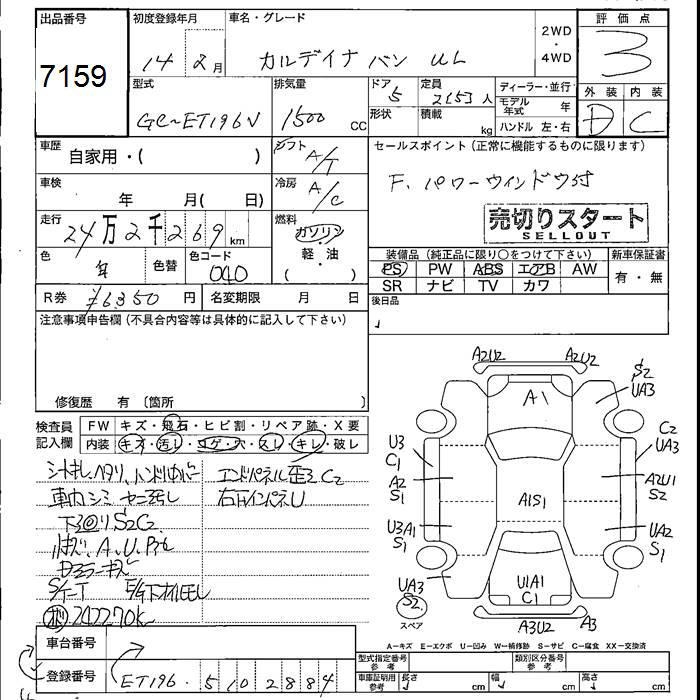 出品番号
7159
初度登録年月
14 2月
車名・グレード
カルディナ バン UL
2WD
・
4WD
評価点
3
外装 内装
D C
型式
GE-ET196V
排気量
1500 CC
ドア 5
形状
定員
2(5)人
積載 kg
ディーラー・並行
モデル年式 年
ハンドル 左・右
車歴
自家用・( )
シフト
A/T
車検
年 月( 日)
冷房
A/C
走行
24万2千269km
燃料
ガソリン
・
軽・油
( )
セールスポイント(正常に機能するものに限ります)
F. パワーウィンドウ付
売切りスタート
SELLOUT
色
色替
色コード
040
装備品(純正品に限り○をつけて下さい)
PS PW ABS エアB AW
SR ナビ TV カワ
新車保証書
有・無
R券 ¥6350円
名変期限 月 日
後日品
注意事項申告欄(不具合内容等は具体的に記入して下さい)
修復歴 有〔箇所 〕
検査員
記入欄
FW キズ・飛石・ヒビ割・リペア跡・X要
内装 キズ・汚し・コゲ・穴・スレ・キレ・破レ
車内シミ
エンドパネル歪3 C2
右下インパネU
S2C2
A.U.
242270k
A2U2 A2U2
S2
UA3
A1
U3
C1
C2
UA3
A2
S1
A1S1
A2U1
S2
U3A1
S1
UA2
S1
UA3
S2
スペア
U1A1
C1
A3U2
A3
A-キズ E-エクボ U-凹み W-補修跡 S-サビ C-腐食 XX-交換済
車台番号
登録番号
ET196-5102884
型式指定番号
参考
類別区分番号
参考
車庫証明用
参考
長さ cm 幅 cm 高さ cm